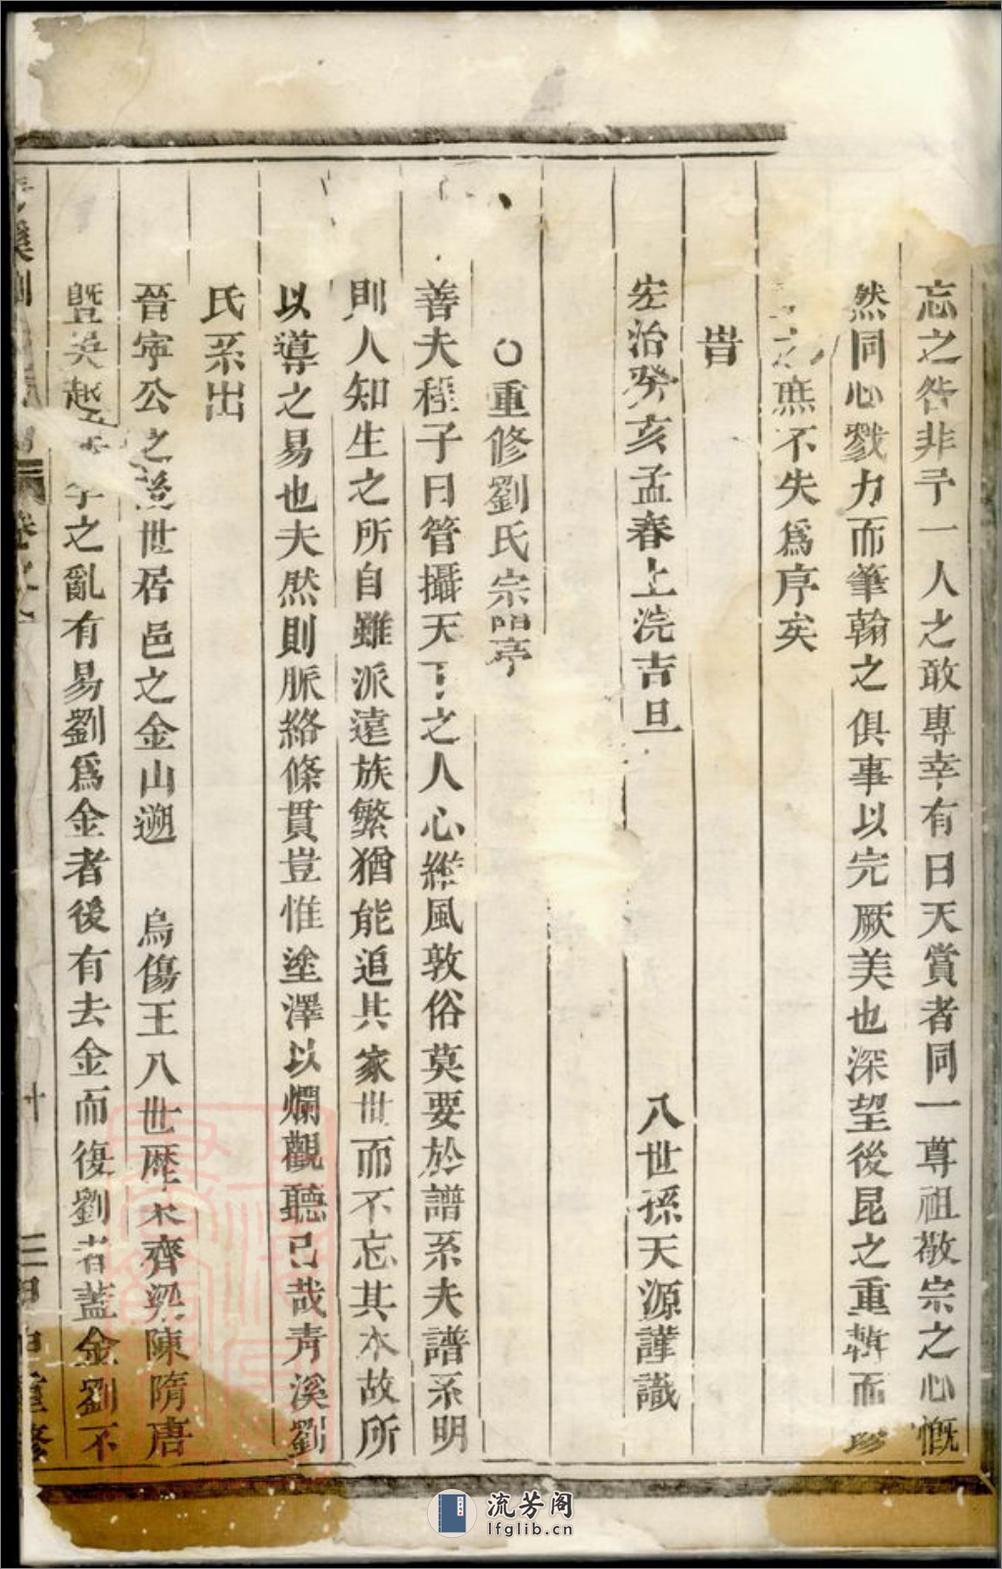 忘之咎非予一人之敢專幸有日天賞者同一尊祖敬宗之心慨
然同心戮力而筆翰之俱事以完厥美也深望後昆之重輯而
之庶不失爲序矣
旹
宏治癸亥孟春上浣吉旦 八世孫天源謹識
○重修劉氏宗譜序
善夫程子曰管攝天下之人心維風敦俗莫要於譜系夫譜系明
則人知生之所自雖派遠族繁猶能追其家世而不忘其本故所
以導之易也夫然則脈絡條貫豈惟塗澤以爛觀聽已哉靑溪劉
氏系出
晉寧公之後世居邑之金山遡 烏傷王八世歷宋齊梁陳隋唐
曁吳越 之亂有易劉爲金者後有去金而復劉者蓋金劉不
溪劉
卷之
重修
流芳阁
lfglib.cn